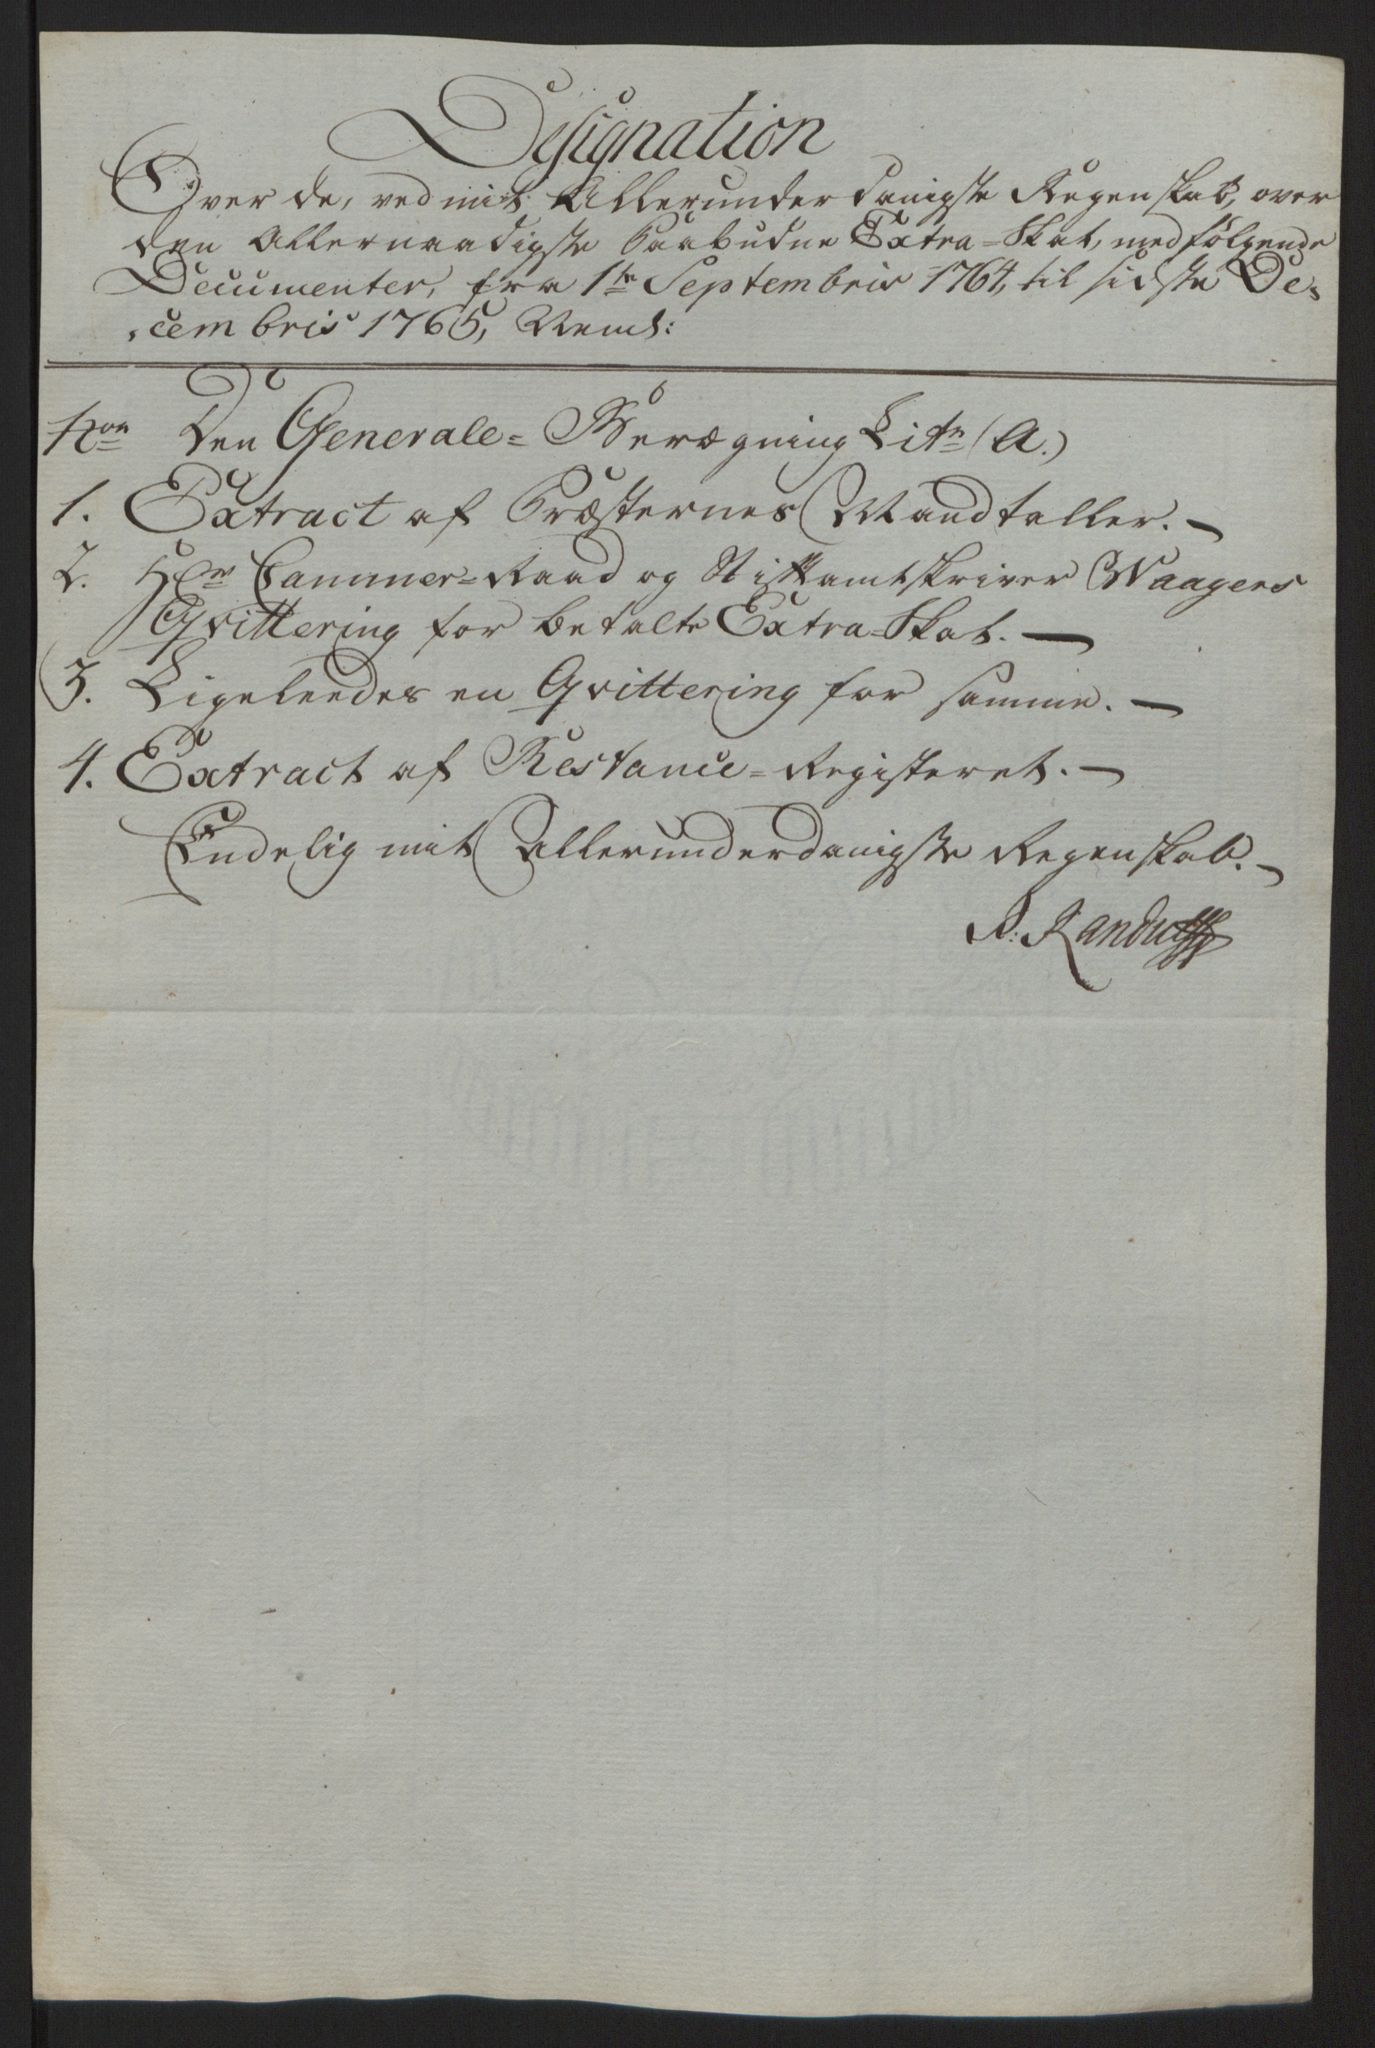 Designation
Over de, ved mit Allerunderdanigste Regenskab, over
den Allernaadigste Paabudne Extra-Skat, medfølgende
Documenter, fra 1te Septembris 1764, til sidste De-
cembris 1765, Neml:
Nom Den Generale-Beregning Litr (A.)
1. Extract af Præsternes Mandtaller.
2. Hr Cammer-Raad og Stiftamtskriver Waagens
Qvittering for betalte Extra-Skat.
3. Ligeleedes en Qvittering for samme.
4. Extract af Restance-Registeret.
Endelig mit Allerunderdanigste Regenskab.
R: Randulff